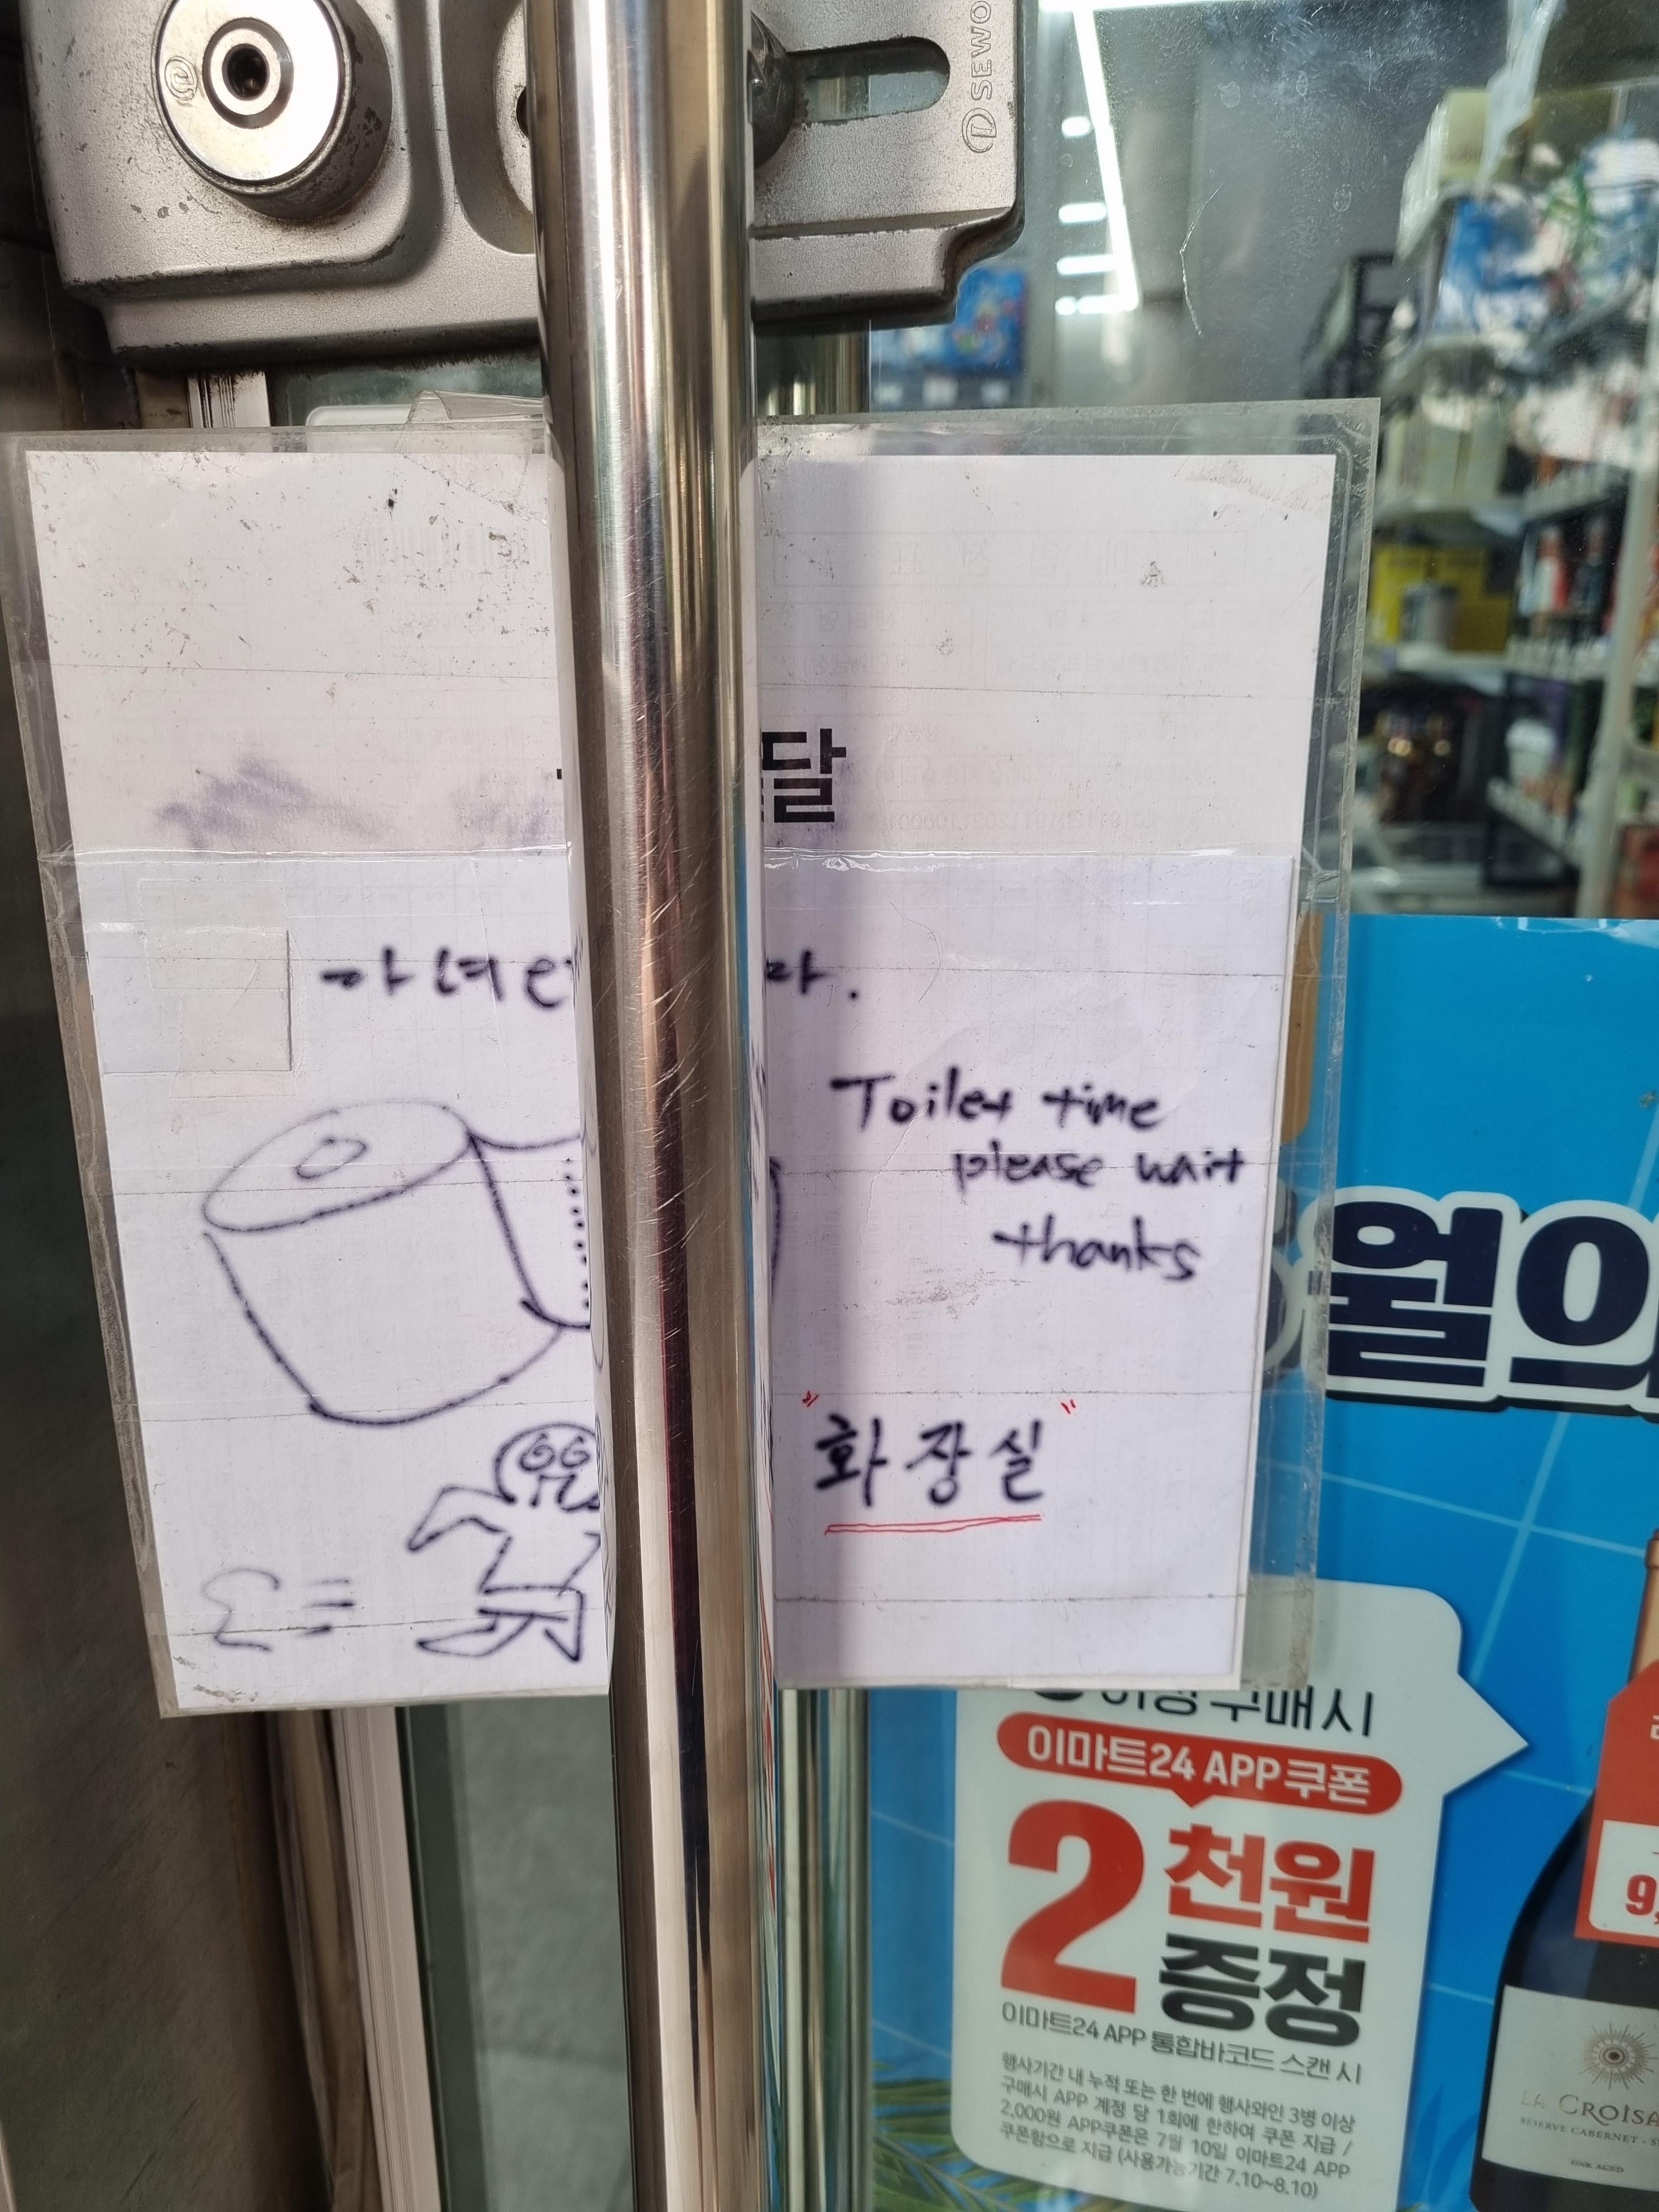 SEWO
달
Toilet time
please wait
thanks
"화장실"
월의
구매시
이마트24 APP쿠폰
2천원
증정
이마트24 APP 통합바코드 스캔 시
행사기간 내 누적 또는 한 번에 행사와인 3병 이상
구매시 APP 계정 당 1회에 한하여 쿠폰 지급 /
2,000원 APP쿠폰은 7월 10일 이마트24 APP
쿠폰함으로 지급 (사용가능기간 7.10~8.10)
9,
LA CROISA
RESERVE CABERNET - S
OAK AGED